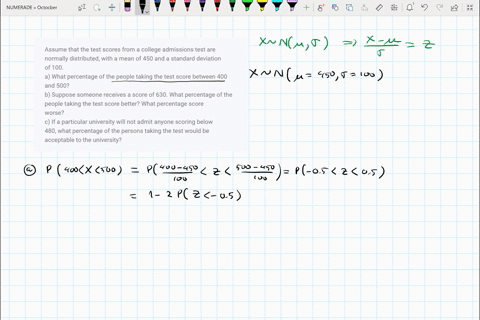 NUMERADE x Octocber
Assume that the test scores from a college admissions test are
normally distributed, with a mean of 450 and a standard deviation
of 100.
a) What percentage of the people taking the test score between 400
and 500?
b) Suppose someone receives a score of 630. What percentage of the
people taking the test score better? What percentage score
worse?
c) If a particular university will not admit anyone scoring below
480, what percentage of the persons taking the test would be
acceptable to the university?
X~N(μ, σ) ⇒ X-μ/σ = Z
X~N(μ = 450, σ = 100)
a) P(400<X<500) = P(400-450/100 < Z < 500-450/100) = P(-0.5 < Z < 0.5)
= 1-2P(Z<-0.5)